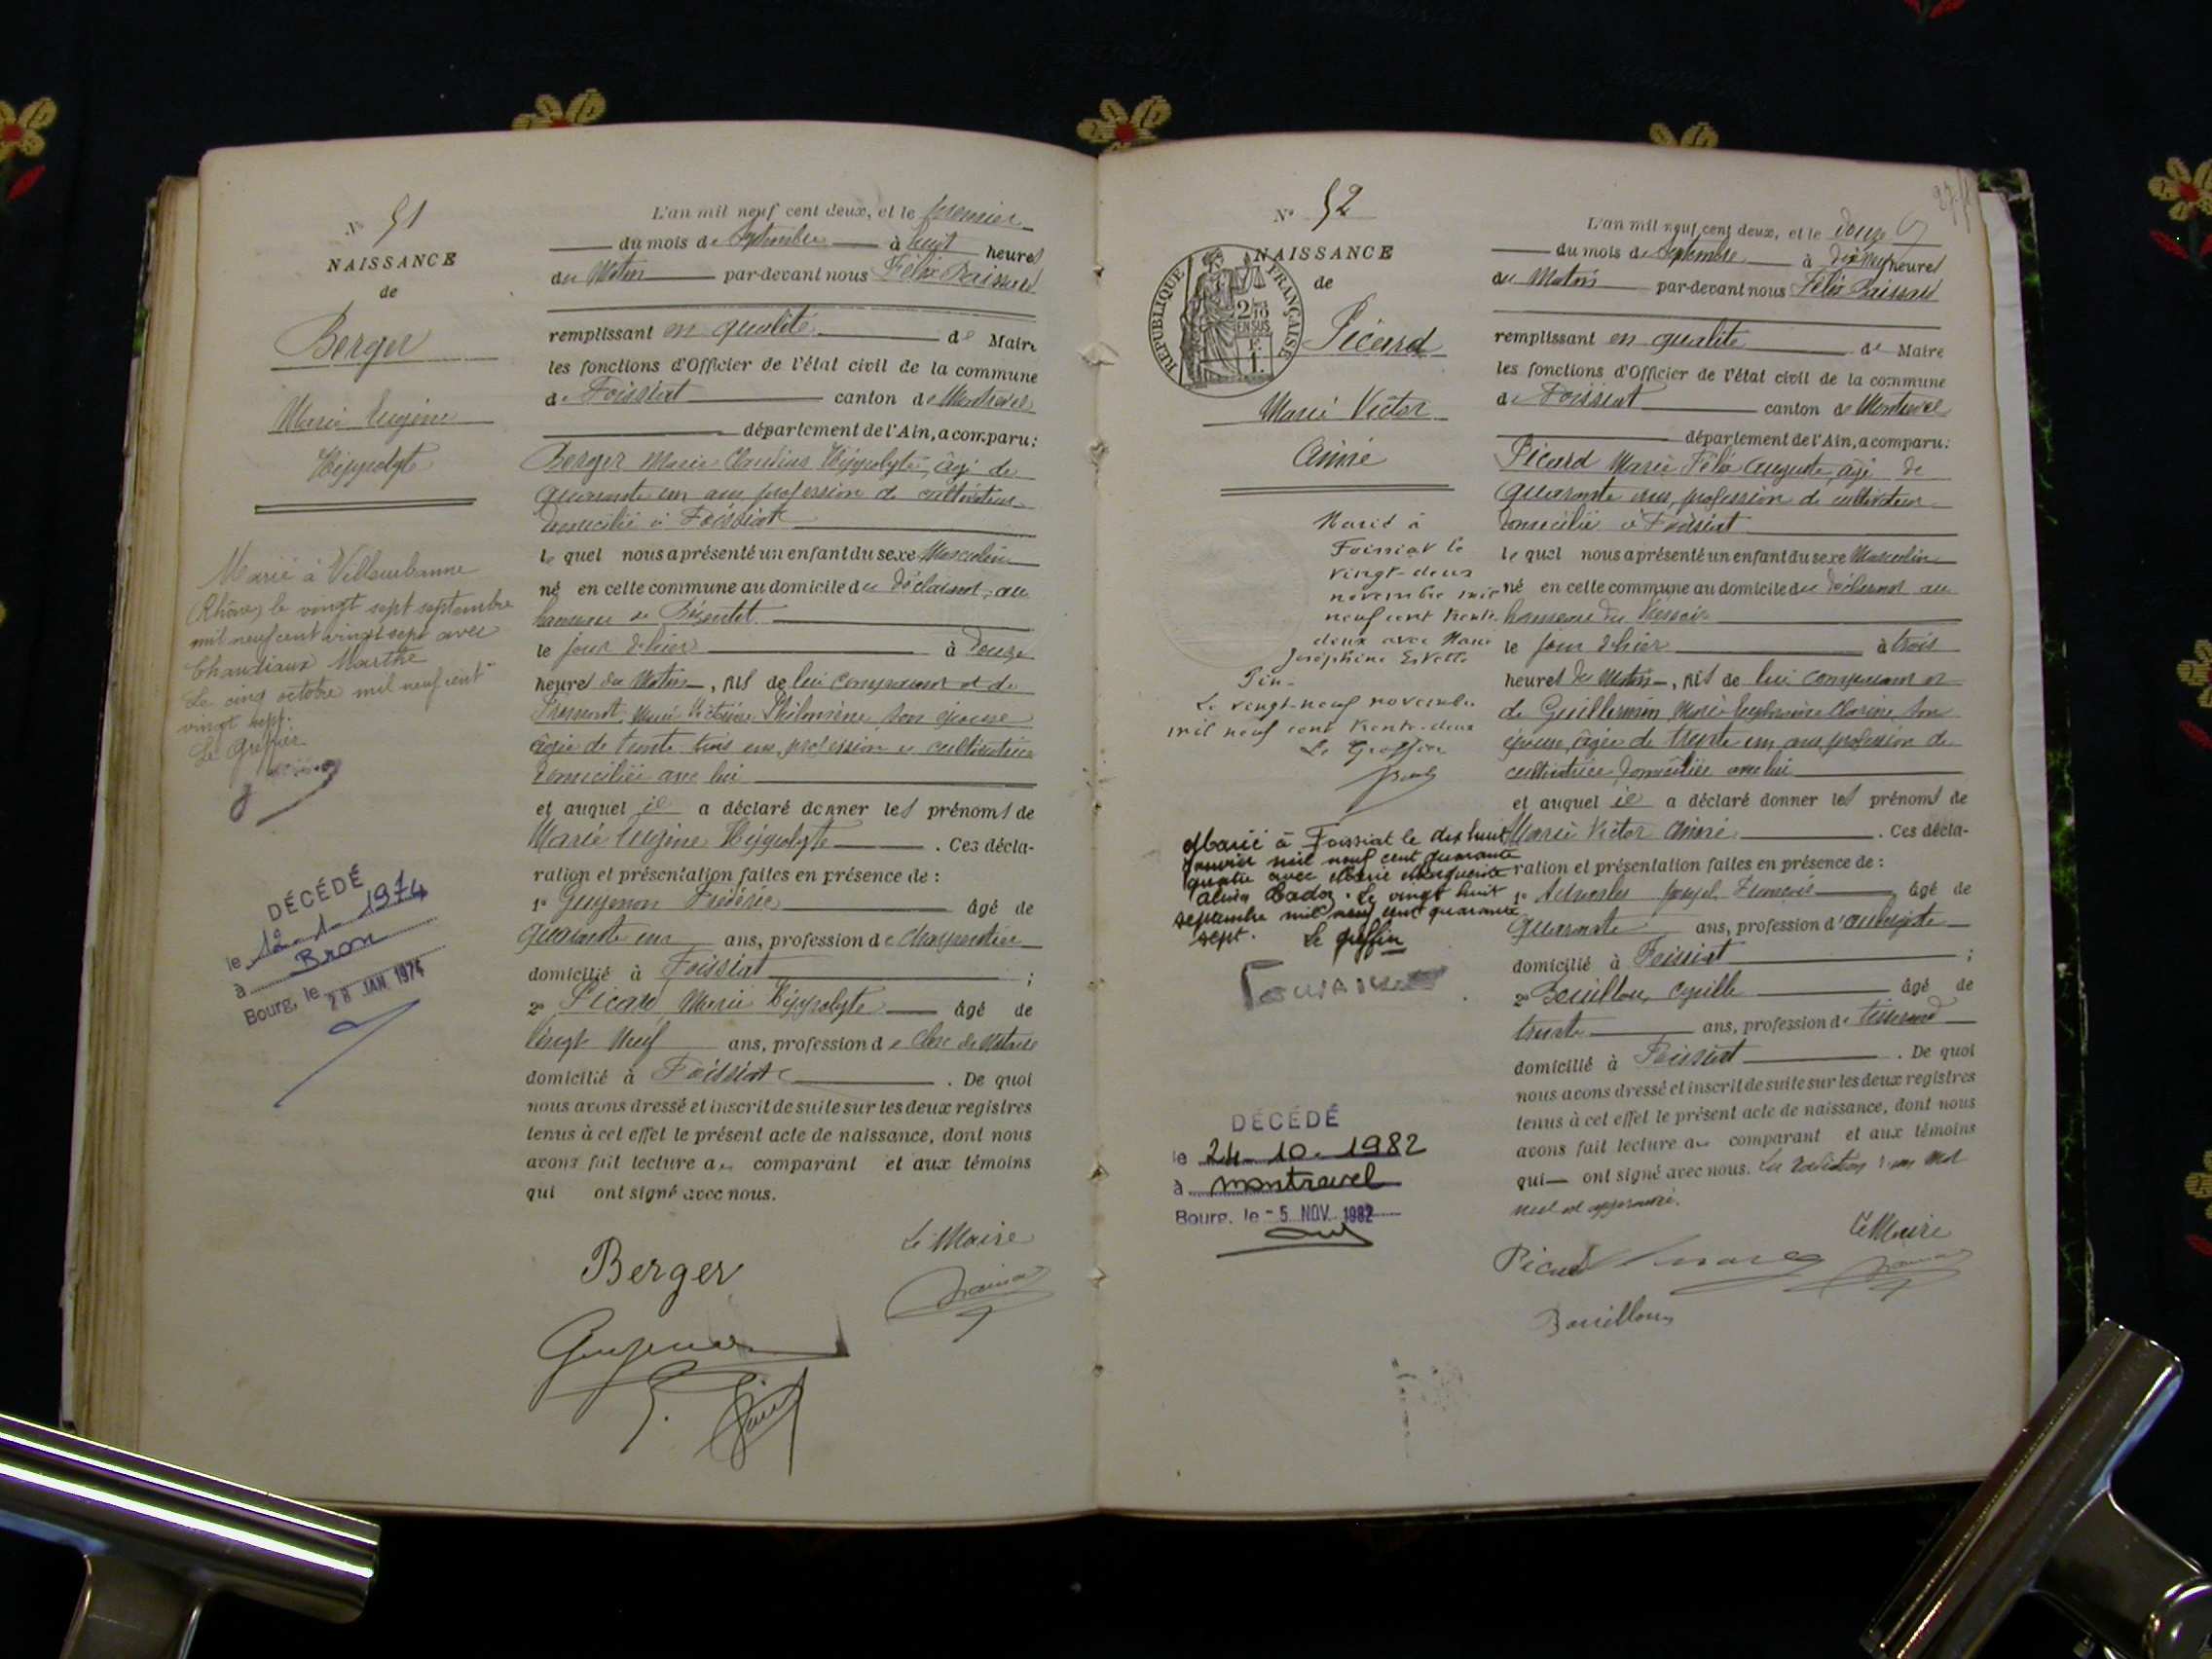 N° 51
NAISSANCE
de
Berger
Marie Eugène
Hippolyte
Marié à Villeurbanne
(Rhône) le vingt sept septembre
mil neuf cent vingt sept avec
Chandiaux Marthe
Le cinq octobre mil neuf cent
vingt sept.
Le Greffier
DÉCÉDÉ
le 12-1-1974
à Bron
Bourg, le 28 JAN 1974
L'an mil neuf cent deux, et le premier
du mois de Septembre à huit heures
du Matin par-devant nous Félix
remplissant en qualité de Maire
les fonctions d'Officier de l'état civil de la commune
de Foissiat canton de Montrevel
département de l'Ain, a comparu:
Berger Marie Claudius Hippolyte, âgé de
quarante un ans, profession de cultivateur
domicilié à Foissiat
le quel nous a présenté un enfant du sexe Masculin
né en cette commune au domicile du déclarant, au
hameau de
le jour d'hier à douze
heures du Matin, fils de lui comparant et de
Marie Victoire Philomène, son épouse
âgée de trente trois ans, profession de cultivatrice
domiciliée avec lui
et auquel il a déclaré donner les prénoms de
Marie Eugène Hippolyte. Ces décla-
ration et présentation faites en présence de :
1° Guyenon Frédéric âgé de
quarante un ans, profession de Charpentier
domicilié à Foissiat ;
2° Picard Marie Hippolyte âgé de
vingt neuf ans, profession de Clerc de Notaire
domicilié à Foissiat. De quoi
nous avons dressé et inscrit de suite sur les deux registres
tenus à cet effet le présent acte de naissance, dont nous
avons fait lecture au comparant et aux témoins
qui ont signé avec nous.
Le Maire
Berger
N° 52
NAISSANCE
de
REPUBLIQUE FRANÇAISE
2/10 EN SUS
1F.
Picard
Marie Victor
Aimé
Marié à
Foissiat le
vingt-deux
novembre mil
neuf cent trente-
deux avec Marie
Joséphine Estelle
Pin.
Le vingt-neuf novembre
mil neuf cent trente-deux
Le Greffier
Marié à Foissiat le dix huit
janvier mil neuf cent quarante
quatre avec Marie Marguerite
Alina Cador. Le vingt huit
septembre mil neuf cent quarante
sept. Le greffier
DÉCÉDÉ
le 24-10-1982
à montrevel
Bourg, le -5 NOV. 1982
L'an mil neuf cent deux, et le douze
du mois de Septembre à dix heures
du Matin par-devant nous Félix
remplissant en qualité de Maire
les fonctions d'Officier de l'état civil de la commune
de Foissiat canton de Montrevel
département de l'Ain, a comparu:
Picard Marie Félix Auguste, âgé de
quarante ans, profession de cultivateur
domicilié à Foissiat
le quel nous a présenté un enfant du sexe Masculin
né en cette commune au domicile du déclarant au
hameau du
le jour d'hier à trois
heures du Matin, fils de lui comparant et
de Guillermin Marie son
épouse, âgée de trente un ans, profession de
cultivatrice, domiciliée avec lui
et auquel il a déclaré donner les prénoms de
Marie Victor Aimé. Ces décla-
ration et présentation faites en présence de :
1° Joseph François âgé de
quarante ans, profession d'aubergiste
domicilié à Foissiat ;
2° Bouillon Cyrille âgé de
trente ans, profession de tisserand
domicilié à Foissiat. De quoi
nous avons dressé et inscrit de suite sur les deux registres
tenus à cet effet le présent acte de naissance, dont nous
avons fait lecture au comparant et aux témoins
qui ont signé avec nous. La radiation d'un mot
nul est approuvée.
Le Maire
Picard
Bouillon